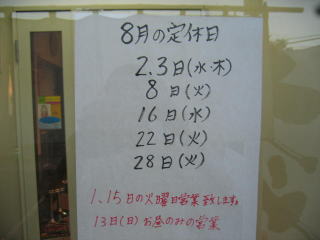 8月の定休日
2.3日(水・木)
8日(火)
16日(水)
22日(火)
28日(火)
1.15日の火曜日営業致します。
13日(日)お昼のみの営業